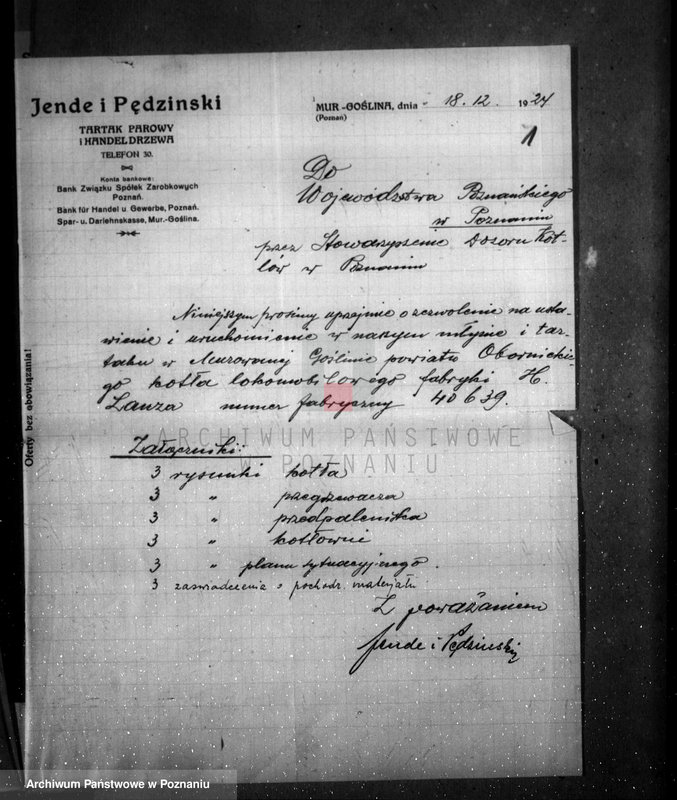 Jende i Pędzinski
TARTAK PAROWY
i HANDEL DRZEWA
TELEFON 30.
Konta bankowe:
Bank Związku Spółek Zarobkowych
Poznań.
Bank für Handel u. Gewerbe, Poznań.
Spar- u. Darlehnskasse, Mur.-Goślina.
MUR-GOŚLINA, dnia 18. 12. 1924
(Poznań)
1
Do
Województwa Poznańskiego
w Poznaniu
przez Stowarzyszenie Dozoru Kot-
łów w Poznaniu
Niniejszym prosimy uprzejmie o zezwolenie na usta-
wienie i uruchomienie w naszym młynie i tar-
taku w Murowanej Goślinie powiatu Obornickie-
go kotła lokomobilowego fabryki H.
Lanza numer fabryczny 40639.
Załączniki:
3 rysunki kotła
3 " przegrzewacza
3 " przedpaleniska
3 " kotłowni
3 " planu sytuacyjnego.
3 zaświadczenia o pochodz. materjału
Z poważaniem
Jende i Pędzinski
Oferty bez obowiązania!
ARCHIWUM PAŃSTWOWE
W POZNANIU
Archiwum Państwowe w Poznaniu